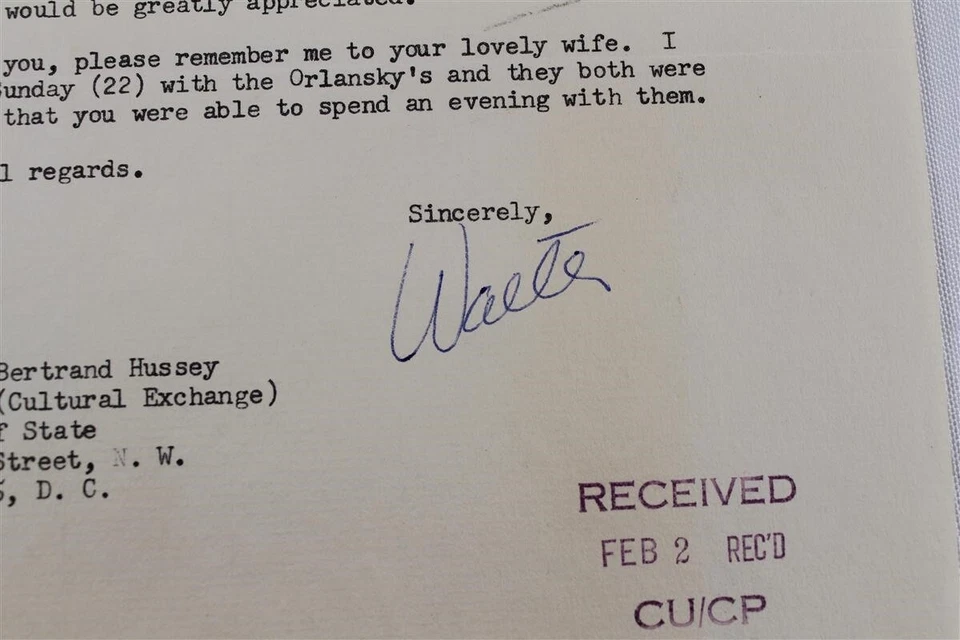 would be greatly appreciated.
you, please remember me to your lovely wife. I
Sunday (22) with the Orlansky's and they both were
that you were able to spend an evening with them.
l regards.
Sincerely,
Walter
Bertrand Hussey
(Cultural Exchange)
f State
Street, N. W.
5, D. C.
RECEIVED
FEB 2 REC'D
CU/CP